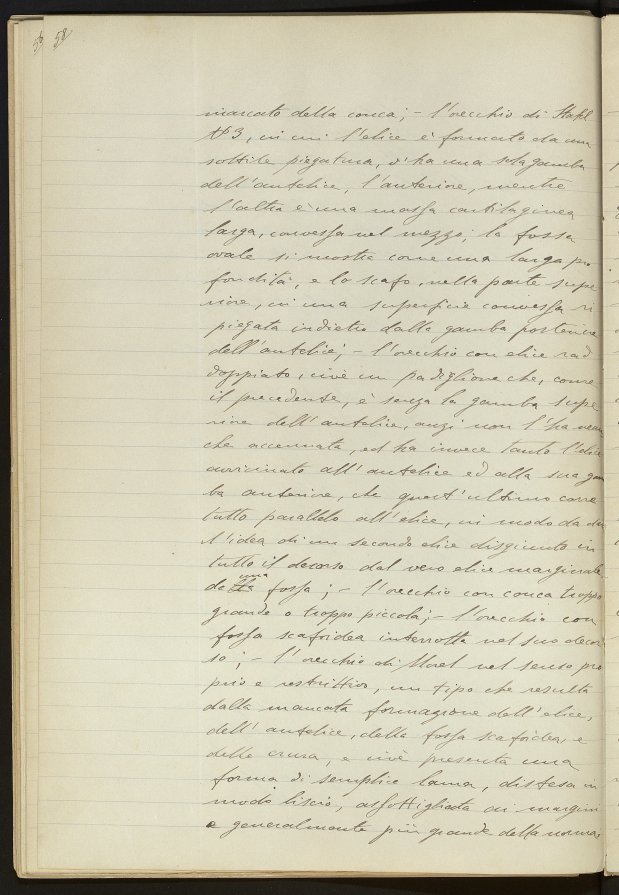 56 58
marcato della conca; – l'orecchio di Stahl
N° 3, in cui l'elice è formato da una
sottile piegatura, v'ha una sola gamba
dell'antelice, l'anteriore, mentre
l'altra è una massa cartilaginea
larga, convessa nel mezzo; la fossa
ovale si mostra come una larga pro
fondità, e lo scafo, nella parte supe
riore, in una superficie convessa ri
piegata indietro dalla gamba posteriore
dell'antelice; – l'orecchio con elice rad
doppiato, cioè un padiglione che, come
il precedente, è senza la gamba supe
riore dell'antelice, anzi non l'ha nean
che accennata, ed ha invece tanto l'elice
avvicinato all'antelice ed alla sua gam
ba anteriore, che quest'ultimo corre
tutto parallelo all'elice, in modo da dar
l'idea di un secondo elice disgiunto in
tutto il decorso dal vero elice marginale
da una fossa; – l'orecchio con conca troppo
grande o troppo piccola; – l'orecchio con
fossa scafoidea interrotta nel suo decor
so; – l'orecchio di Morel nel senso pro
prio e restrittivo, un tipo che resulta
dalla mancata formazione dell'elice,
dell'antelice, della fossa scafoidea, e
delle crura, e cioè presenta una
forma di semplice lama, distesa in
modo liscio, assottigliata ai margini
e generalmente più grande della norma